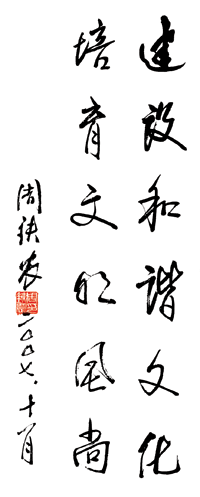 建设和谐文化
培育文明风尚
周铁农 二〇〇七、十月